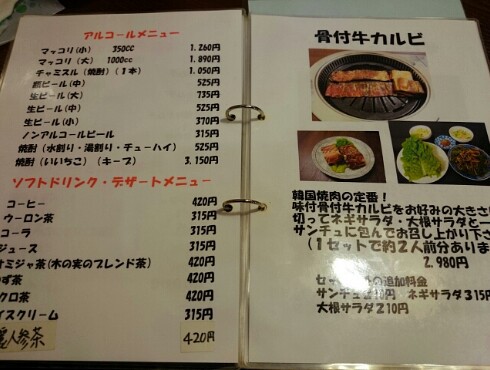 アルコールメニュー
マッコリ(小) 350cc 1.260円
マッコリ(大) 1000cc 1.890円
チャミスル(焼酎)(1本) 1.050円
瓶ビール(中) 525円
生ビール(大) 735円
生ビール(中) 525円
生ビール(小) 370円
ノンアルコールビール 315円
焼酎(水割り・湯割り・チューハイ) 525円
焼酎(いいちこ)(キープ) 3.150円
ソフトドリンク・デザートメニュー
コーヒー 420円
ウーロン茶 315円
コーラ 315円
ジュース 315円
オミジャ茶(木の実のブレンド茶) 420円
ず茶 420円
クロ茶 420円
イスクリーム 315円
人参茶 420円
骨付牛カルビ
韓国焼肉の定番!
味付骨付牛カルビをお好みの大きさ
切ってネギサラダ・大根サラダと一
サンチュに包んでお召し上がり下さ
(1セットで約2人前分ありま
2.980円
の追加料金
サンチュ 10円 ネギサラダ315円
大根サラダ210円